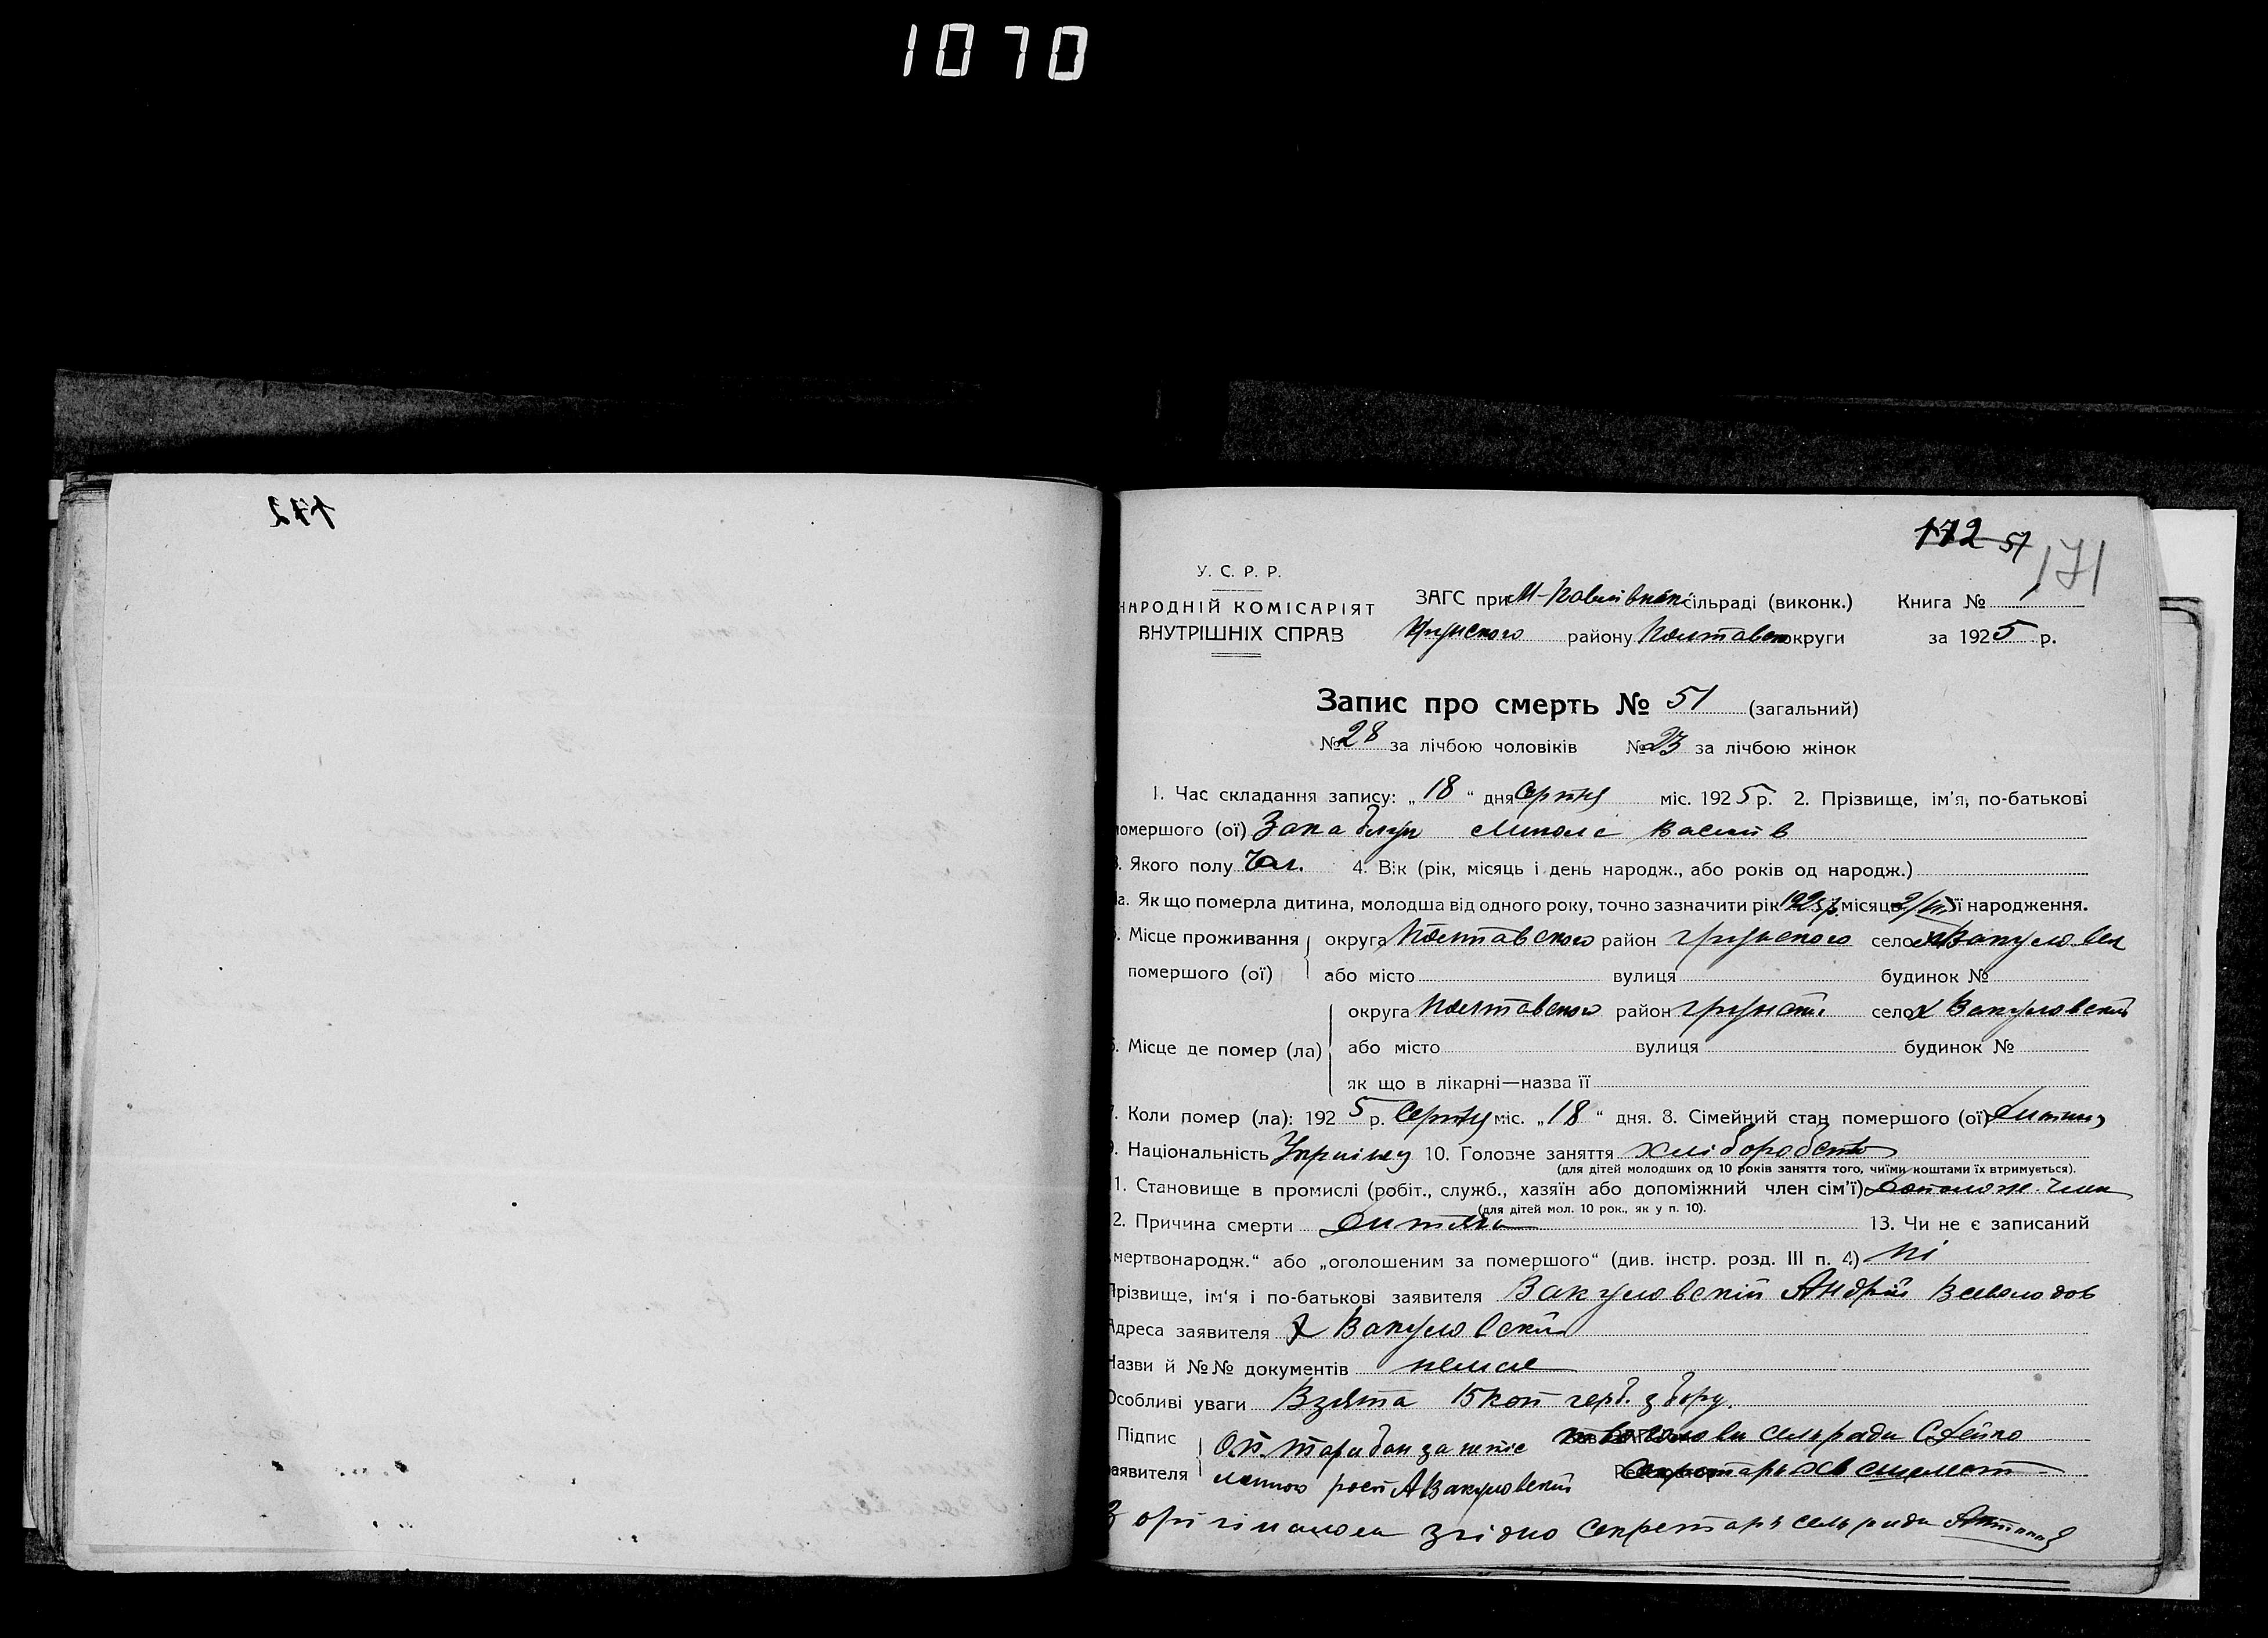 1070
172
172 51
171
У. С. Р. Р.
НАРОДНІЙ КОМІСАРІЯТ
ВНУТРІШНІХ СПРАВ
ЗАГС при сільраді (виконк.) Книга № 1
району Полтавськ округи за 1925 р.
Запис про смерть № 51 (загальний)
№ 28 за лічбою чоловіків № 23 за лічбою жінок
1. Час складання запису: „18" дня Серпня міс. 1925 р. 2. Прізвище, ім'я, по-батькові
помершого (ої) Васиів
3. Якого полу Чол. 4. Вік (рік, місяць і день народж., або років од народж.)
4а. Як що померла дитина, молодша від одного року, точно зазначити рік 1925 р. місяць її народження.
5. Місце проживання помершого (ої) округа Полтавського район Грунського село х Вакуловск
або місто вулиця будинок №
6. Місце де помер (ла) округа Полтавського район село х Вакуловский
або місто вулиця будинок №
як що в лікарні—назва її
7. Коли помер (ла): 1925 р. Серпня міс. „18" дня. 8. Сімейний стан помершого (ої)
9. Національність 10. Головне заняття хліборобств
(для дітей молодших од 10 років заняття того, чиїми коштами їх втримується).
11. Становище в промислі (робіт., служб., хазяїн або допоміжний член сім'ї) допомож. член
(для дітей мол. 10 рок., як у п. 10).
12. Причина смерти 13. Чи не є записаний
„мертвонародж." або „оголошеним за помершого" (див. інстр. розд. III п. 4) ні
Прізвище, ім'я і по-батькові заявителя Вакуловський Андрій Всеволодов
Адреса заявителя х Вакуловский
Назви й №№ документів немає
Особливі уваги Взята 15 коп герб. збору.
Підпис заявителя голови сельради
А Вакуловский Секротарь
З орігіналом згідно секретарь сельради